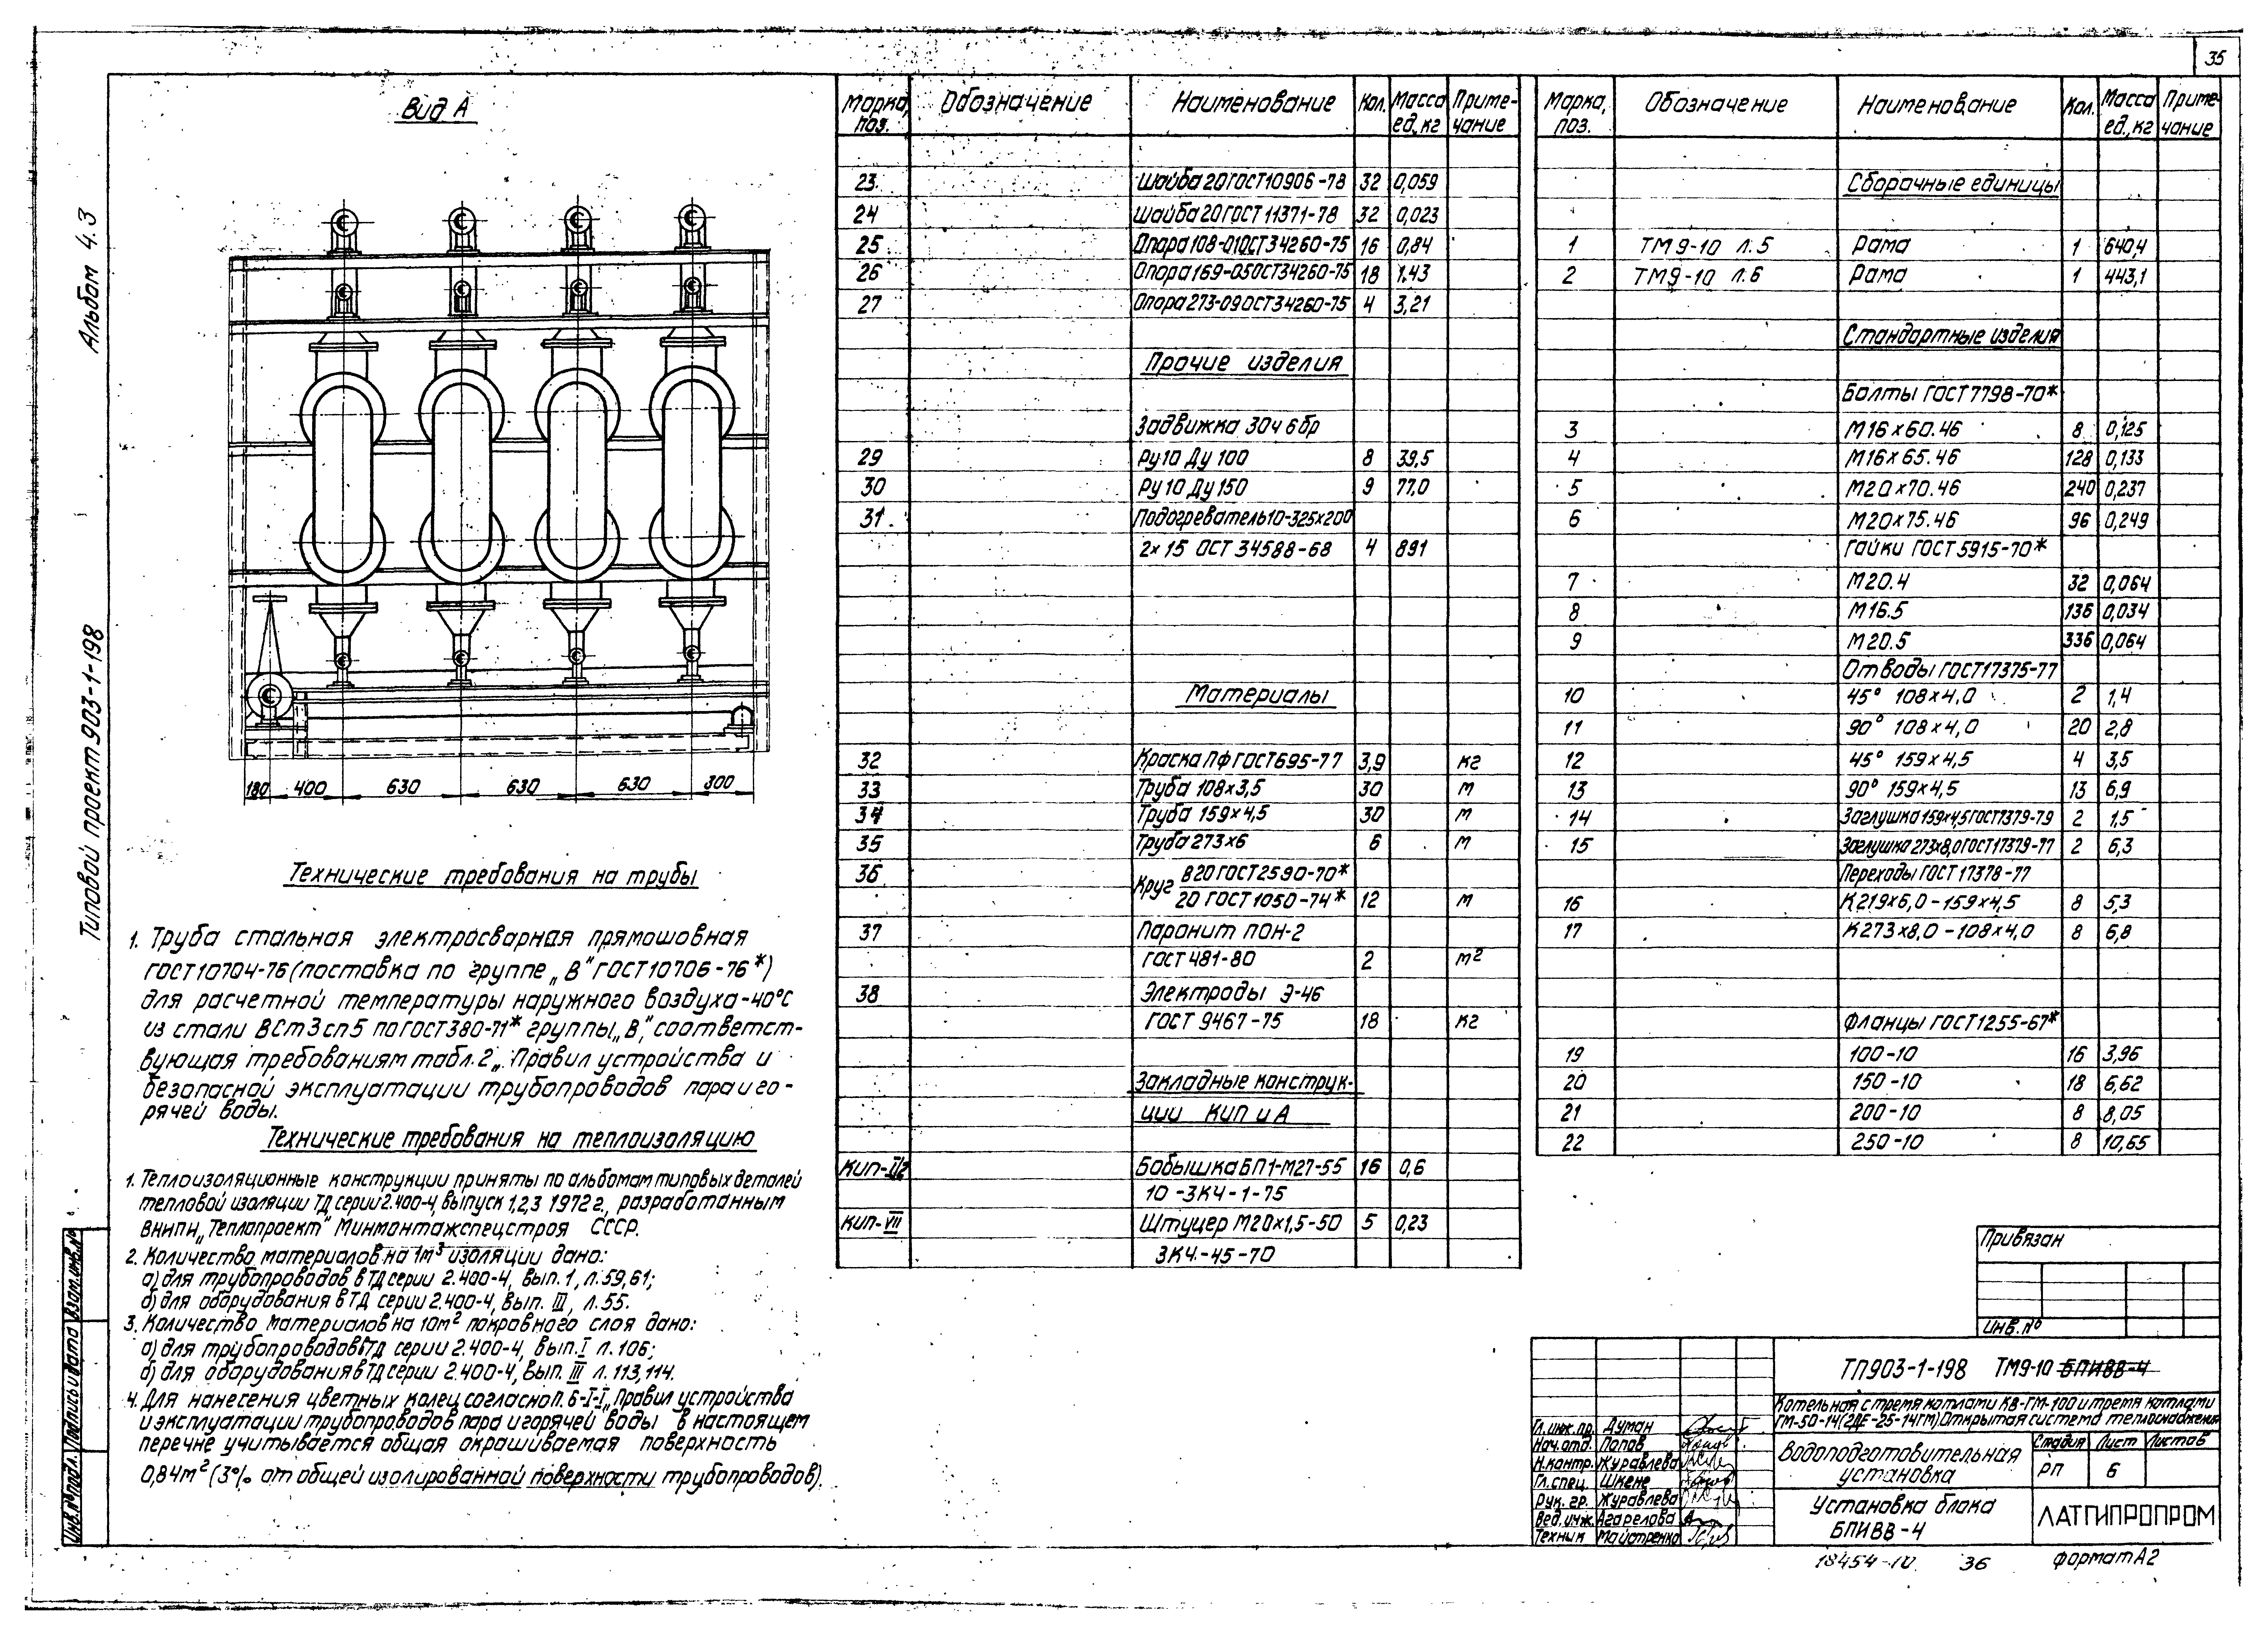 35
Альбом 4.3
Типовой проект 903-1-198
Вид А
180 400 630 630 630 300
Технические требования на трубы
1. Труба стальная электросварная прямошовная
ГОСТ10704-76 (поставка по группе „В" ГОСТ10706-76*)
для расчетной температуры наружного воздуха -40°С
из стали ВСт3сп5 по ГОСТ380-71* группы „В", соответст-
вующая требованиям табл. 2 „Правил устройства и
безопасной эксплуатации трубопроводов пара и го-
рячей воды.
Технические требования на теплоизоляцию
1. Теплоизоляционные конструкции приняты по альбомам типовых деталей
тепловой изоляции ТД серии 2.400-4, выпуск 1,2,3 1972 г., разработанным
ВНИПИ „Теплопроект" Минмонтажспецстроя СССР.
2. Количество материалов на 1м³ изоляции дано:
а) для трубопроводов в ТД серии 2.400-4, вып. 1, л. 59, 61;
б) для оборудования в ТД серии 2.400-4, вып. III, л. 55.
3. Количество материалов на 10м² покровного слоя дано:
а) для трубопроводов в ТД серии 2.400-4, вып. I л. 106;
б) для оборудования в ТД серии 2.400-4, вып. III л. 113, 114.
4. Для нанесения цветных колец согласно п. 6-I-I „Правил устройства
и эксплуатации трубопроводов пара и горячей воды в настоящем
перечне учитывается общая окрашиваемая поверхность
0,84м² (3% от общей изолированной поверхности трубопроводов).
Марка, поз. Обозначение Наименование Кол. Масса ед., кг Приме-чание
23 Шайба 20 ГОСТ10906-78 32 0,059
24 Шайба 20 ГОСТ 11371-78 32 0,023
25 Опора 108-01 ОСТ34260-75 16 0,84
26 Опора 169-05 ОСТ34260-75 18 1,43
27 Опора 273-09 ОСТ34260-75 4 3,21
Прочие изделия
Задвижка 30ч6бр
29 Ру10 Ду 100 8 39,5
30 Ру 10 Ду 150 9 77,0
31 Подогреватель 10-325х200
2х15 ОСТ 34588-68 4 891
Материалы
32 Краска ПФ ГОСТ695-77 3,9 кг
33 Труба 108х3,5 30 м
34 Труба 159х4,5 30 м
35 Труба 273х6 6 м
36 Круг В20 ГОСТ2590-70*
20 ГОСТ 1050-74* 12 м
37 Паронит ПОН-2
ГОСТ 481-80 2 м²
38 Электроды Э-46
ГОСТ 9467-75 18 кг
Закладные конструк-
ции КИП и А
КИП-II/2 Бобышка БП1-М27-55 16 0,6
10-ЗК4-1-75
КИП-VII Штуцер М20х1,5-50 5 0,23
ЗК4-45-70
Марка, поз. Обозначение Наименование Кол. Масса ед., кг Приме-чание
Сборочные единицы
1 ТМ9-10 л. 5 Рама 1 640,4
2 ТМ9-10 л. 6 Рама 1 443,1
Стандартные изделия
Болты ГОСТ 7798-70*
3 М16х60.46 8 0,125
4 М16х65.46 128 0,133
5 М20х70.46 240 0,237
6 М20х75.46 96 0,249
Гайки ГОСТ 5915-70*
7 М20.4 32 0,064
8 М16.5 136 0,034
9 М20.5 336 0,064
Отводы ГОСТ17375-77
10 45° 108х4,0 2 1,4
11 90° 108х4,0 20 2,8
12 45° 159х4,5 4 3,5
13 90° 159х4,5 13 6,9
14 Заглушка 159х4,5 ГОСТ17379-79 2 1,5
15 Заглушка 273х8,0 ГОСТ17379-77 2 6,3
Переходы ГОСТ 17378-77
16 К219х6,0-159х4,5 8 5,3
17 К273х8,0-108х4,0 8 6,8
Фланцы ГОСТ1255-67*
19 100-10 16 3,96
20 150-10 18 6,62
21 200-10 8 8,05
22 250-10 8 10,65
Привязан
Инв. №
ТП903-1-198 ТМ9-10 БПИВВ-4
Котельная с тремя котлами КВ-ГМ-100 и тремя котлами
ГМ-50-14 (2ДЕ-25-14ГМ) Открытая система теплоснабжения
Гл. инж. пр. Думан
Нач. отд. Попов
Н. контр. Журавлева
Гл. спец. Шкене
Рук. гр. Журавлева
Вед. инж. Агарелова
Техник Майстренко
Водоподготовительная
установка
Стадия Лист Листов
РП 6
Установка блока
БПИВВ-4
ЛАТГИПРОПРОМ
18454-10 36 формат А2
Инв. № подл. Подпись и дата Взам. инв. №